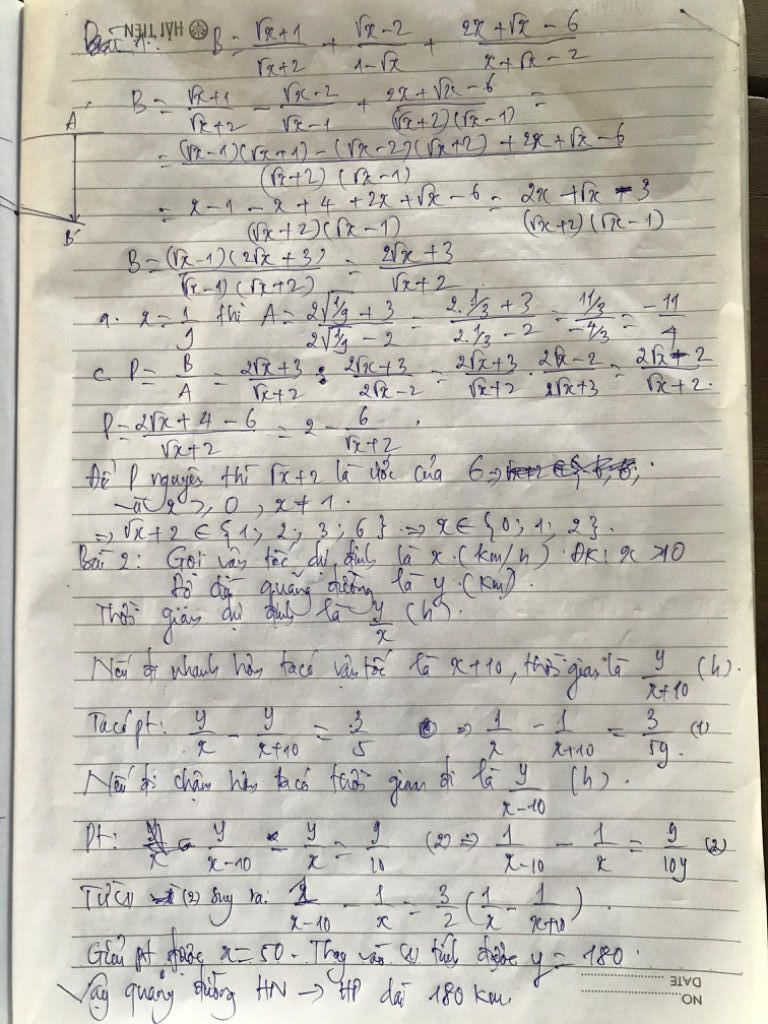 HẢI TIẾN
Bài 1: B = (√x+1)/(√x+2) + (√x−2)/(1−√x) + (2x+√x−6)/(x+√x−2)
B = (√x+1)/(√x+2) − (√x−2)/(√x−1) + (2x+√x−6)/((√x+2)(√x−1)) =
= ((√x−1)(√x+1) − (√x−2)(√x+2) + 2x+√x−6)/((√x+2)(√x−1))
= (x−1−x+4+2x+√x−6)/((√x+2)(√x−1)) = (2x+√x−3)/((√x+2)(√x−1))
B = ((√x−1)(2√x+3))/((√x−1)(√x+2)) = (2√x+3)/(√x+2)
a. x = 1/9 thì A = (2√1/9 + 3)/(2√1/9 − 2) = (2.1/3 + 3)/(2.1/3 − 2) = (11/3)/(−4/3) = −11/4
c. P = B/A = (2√x+3)/(√x+2) : (2√x+3)/(2√x−2) = (2√x+3)/(√x+2) . (2√x−2)/(2√x+3) = (2√x−2)/(√x+2).
P = (2√x+4−6)/(√x+2) = 2 − 6/(√x+2).
Để P nguyên thì √x+2 là ước của 6 ⇒
và x ≥ 0, x ≠ 1.
⇒ √x+2 ∈ {1; 2; 3; 6} ⇒ x ∈ {0; 1; 2}.
Bài 2: Gọi vận tốc dự định là x (km/h). ĐK: x > 10
Độ dài quãng đường là y (km).
Thời gian dự định là y/x (h).
Nếu đi nhanh hơn ta có vận tốc là x+10, thời gian là y/(x+10) (h).
Ta có pt: y/x − y/(x+10) = 3/5 ⇒ 1/x − 1/(x+10) = 3/5y (1)
Nếu đi chậm hơn ta có thời gian đi là y/(x−10) (h).
Pt: y/(x−10) − y/x = 9/10 (2) ⇒ 1/(x−10) − 1/x = 9/10y (2)
Từ (1) (2) suy ra: 1/(x−10) − 1/x = 3/2 (1/x − 1/(x+10)).
Giải pt được x = 50. Thay vào (1) tính được y = 180.
Vậy quãng đường HN → HP dài 180 km.
A
B
DATE
NO.